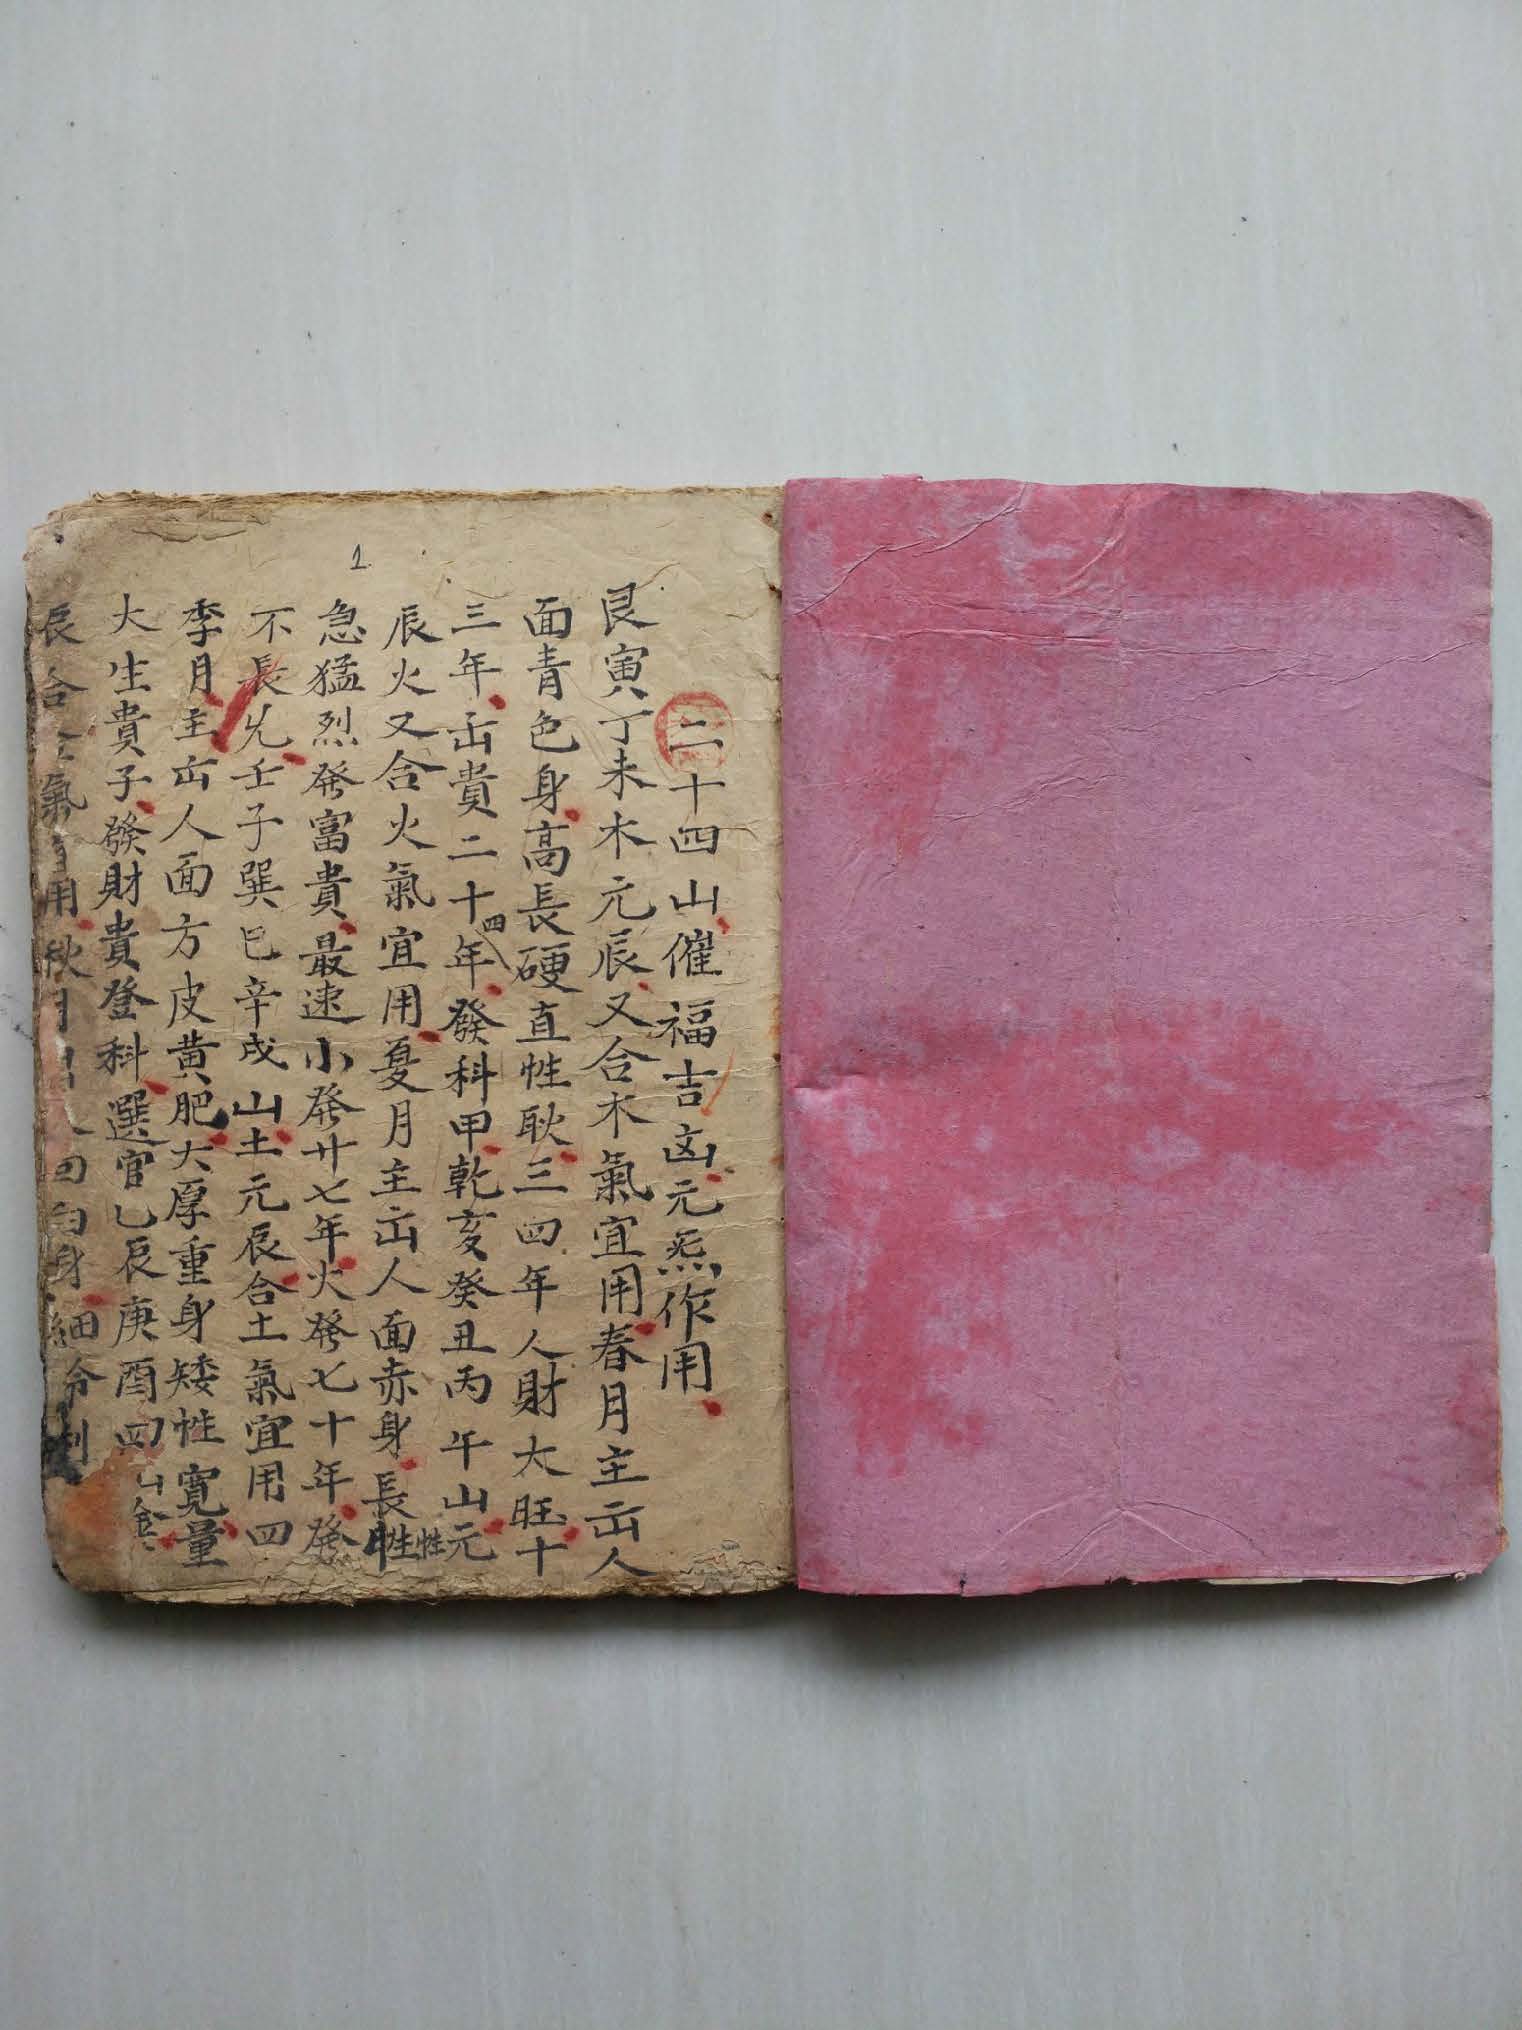 1
二十四山催福吉凶元炁作用
艮寅丁未木元辰又合木氣宜用春月主出人
面青色身高長硬直性耿三四年人財大旺十
三年出貴二十四年發科甲乾亥癸丑丙午山元
辰火又合火氣宜用夏月主出人面赤身長性性
急猛烈發富貴最速小發廿七年火發七十年發
不長久壬子巽巳辛戌山土元辰合土氣宜用四
季月主出人面方皮黃肥大厚重身矮性寬量
大生貴子發財貴登科選官乙辰庚酉四山金
辰合金氣用秋月出人白身細伶俐